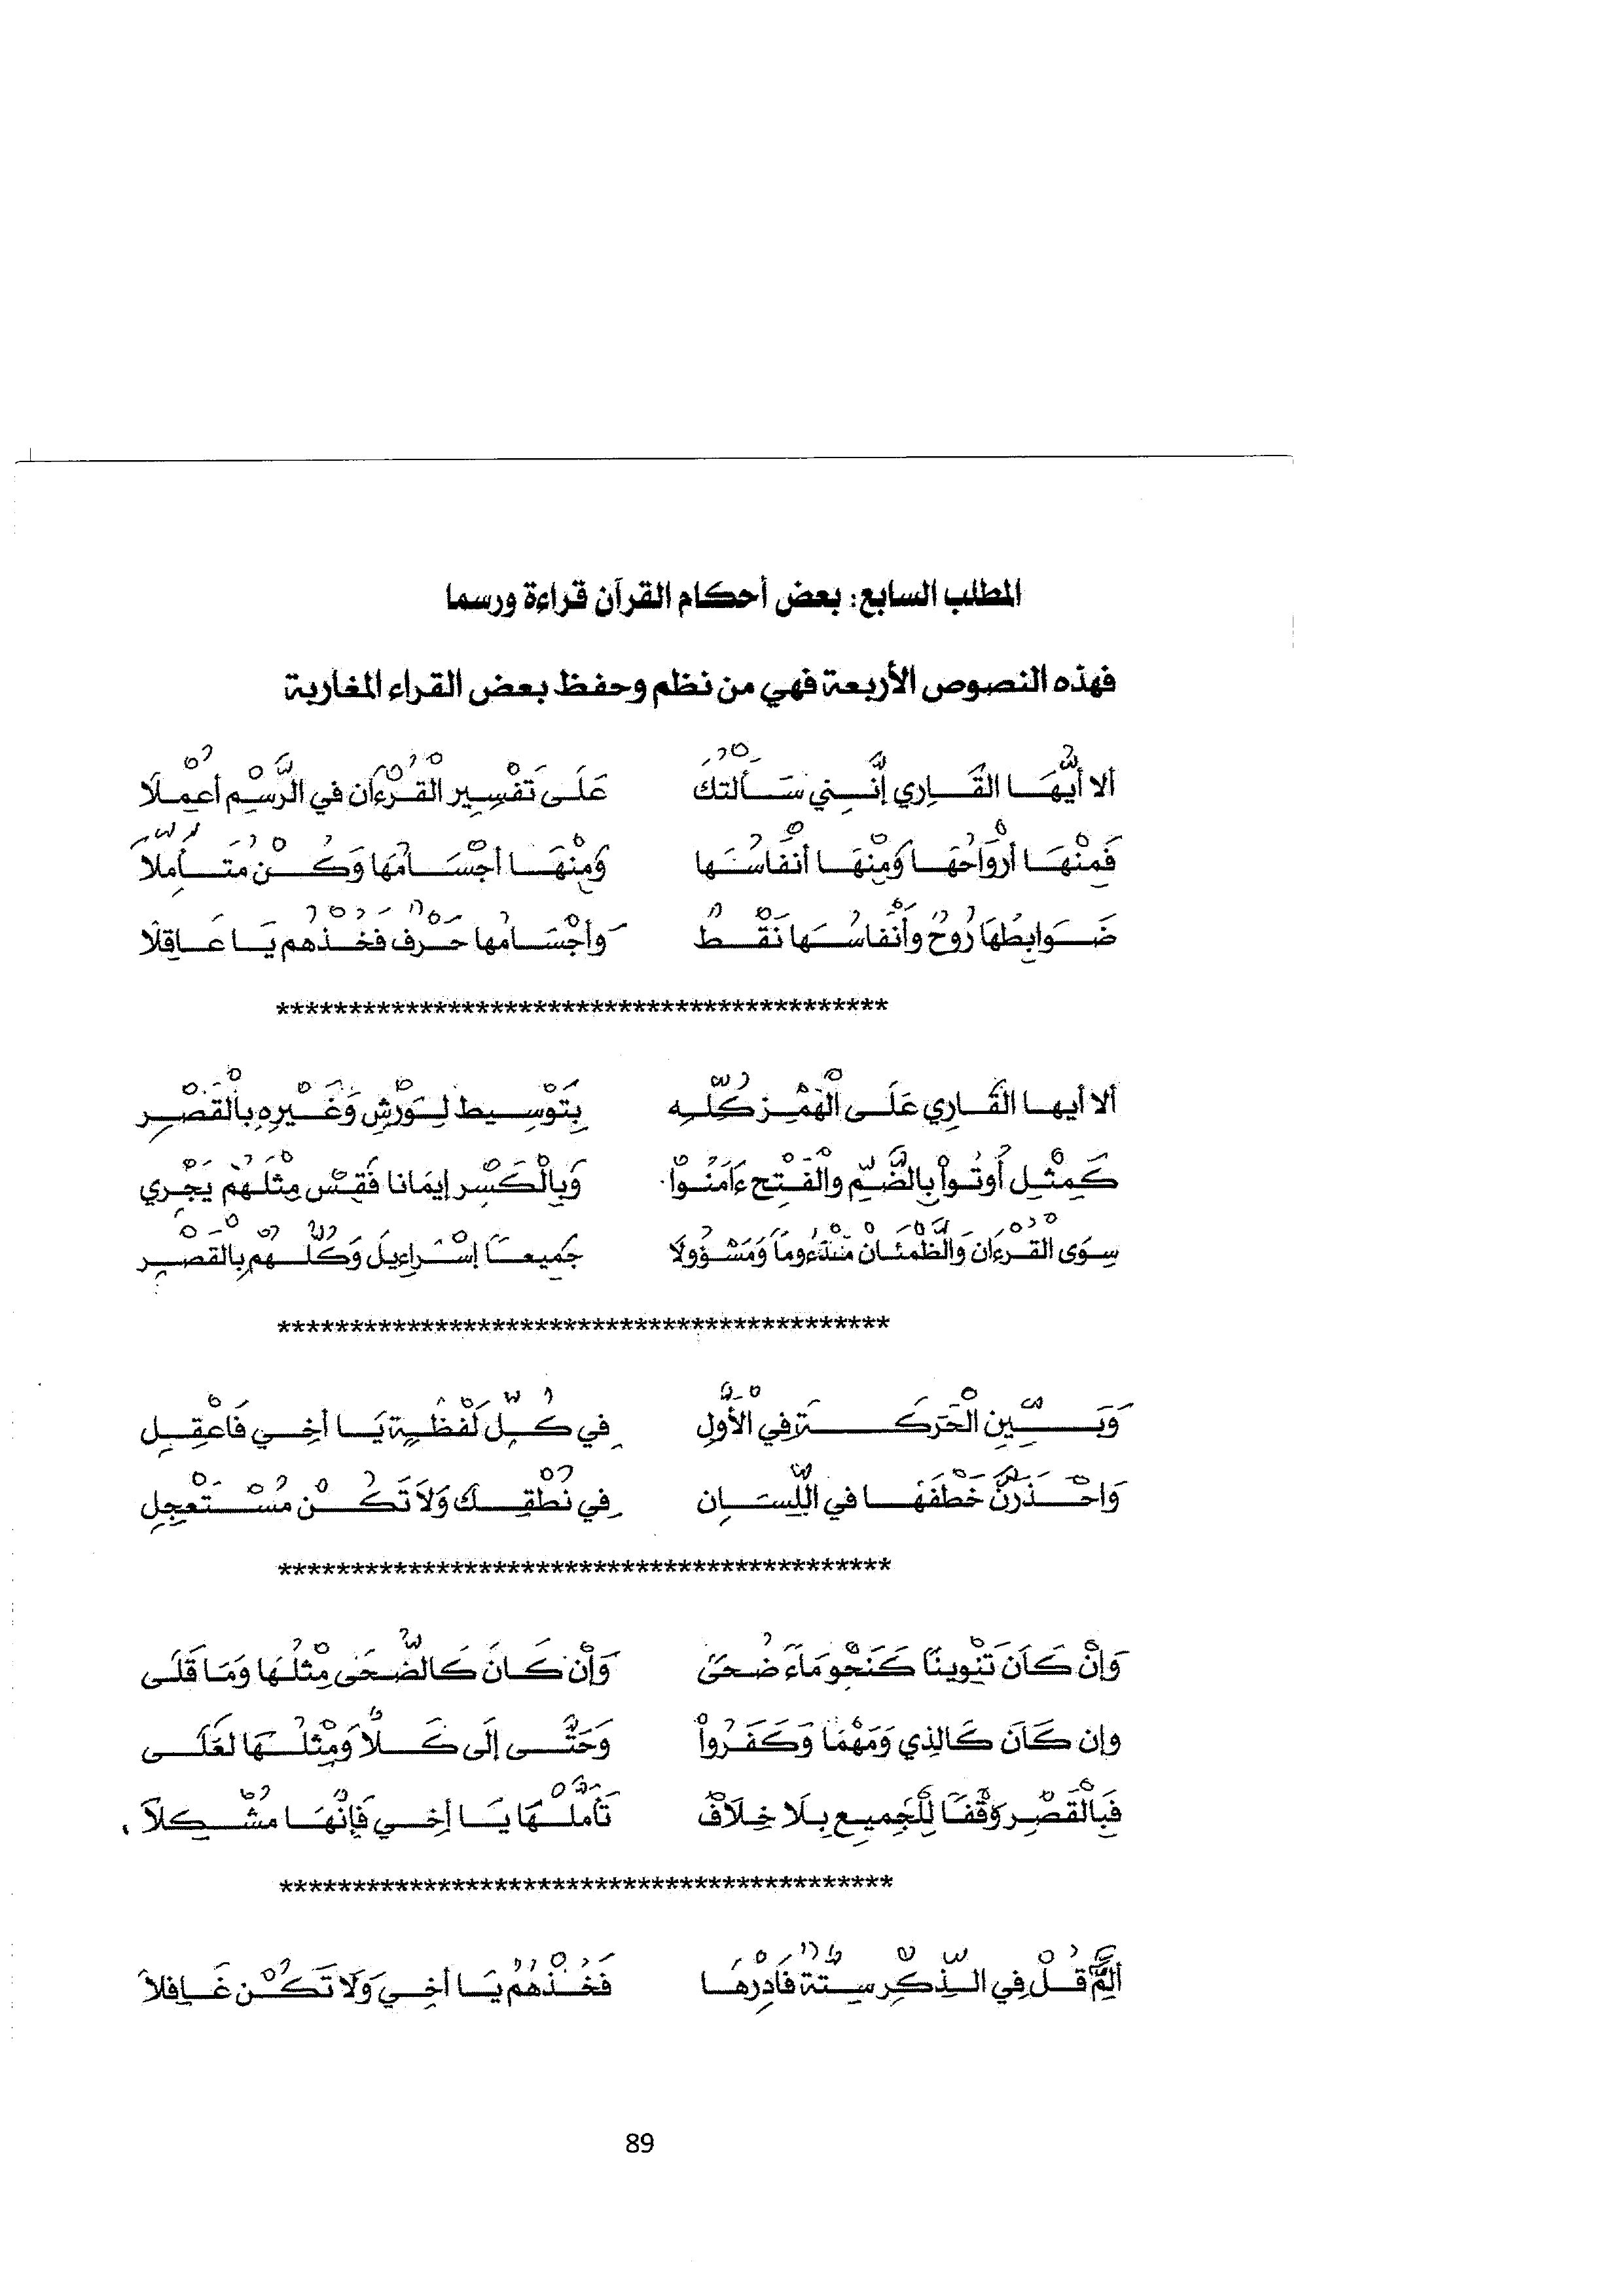 المطلب السابع: بعض أحكام القرآن قراءة ورسما
فهذه النصوص الأربعة فهي من نظم وحفظ بعض القراء المغاربة
ألا أَيُّهَا القَارِي إِنَّنِي سَأَلتك عَلَى تَفْسِيرِ القُرْءَانِ في الرَّسْمِ أُعْمِلَا
فَمِنْهَا أرْوَاحُهَا وَمِنْهَا أنْفَاسُهَا وَمِنْهَا أجْسَامُهَا وَكُنْ مُتَأَمِّلاً
ضَوَابِطُهَا رُوحٌ وأَنْفاسُهَا نَقْطٌ وَأجْسَامُها حَرْفٌ فَخُذْهُمْ يَا عَاقِلَا
*******************************************
ألا أيها القَارِي عَلَى الْهَمْزِ كُلِّهِ بِتَوْسِيطٍ لِوَرْشٍ وَغَيْرِهِ بِالْقَصْرِ
كَمِثْلِ أُوتُواْ بِالضَّمِّ والْفَتْحِ ءَامَنُواْ وَبِالْكَسْرِ إيمَانا فَقِسْ مِثْلَهُمْ يَجْرِي
سِوَى القُرْءَانِ وَالظَّمْئَانِ مَذْءُوماً وَمَسْؤُولَا جَمِيعاً إِسْرَاءِيلَ وَكُلُّهُمْ بِالقَصْرِ
*******************************************
وَبَيِّنِ الْحَرَكَةِ في الْأَوَّلِ فِي كُلِّ لَفْظَةٍ يَا أخِي فَاعْقِلِ
وَاحْذَرَنَّ خَطْفَهَا في اللِّسَانِ فِي نُطْقِكَ وَلاَ تَكُنْ مُسْتَعْجِلِ
*******************************************
وَإِنْ كَانَ تَنْوِينًا كَنَحْوِ مَاءً ضُحىً وَإِنْ كَانَ كَالضُّحَى مِثْلُهَا وَمَا قَلَى
وإن كَانَ كَالذِي وَمَهْمَا وَكَفَرُواْ وَحَتَّى إِلَى كَلاَّ وَمِثْلُهَا لَعَلَى
فَبِالْقَصْرِ وَقْفًا لِلْجَمِيعِ بِلَا خِلَافٌ تَأَمَّلْهَا يَا أَخِي فَإِنَّهَا مُشْكِلاَ
*******************************************
أَلَمِّ قُلْ فِي الذِّكْرِ سِتَّةٌ فَادْرِهَا فَخُذْهُمْ يَا أخِي وَلَا تَكُنْ غَافِلاَ
89